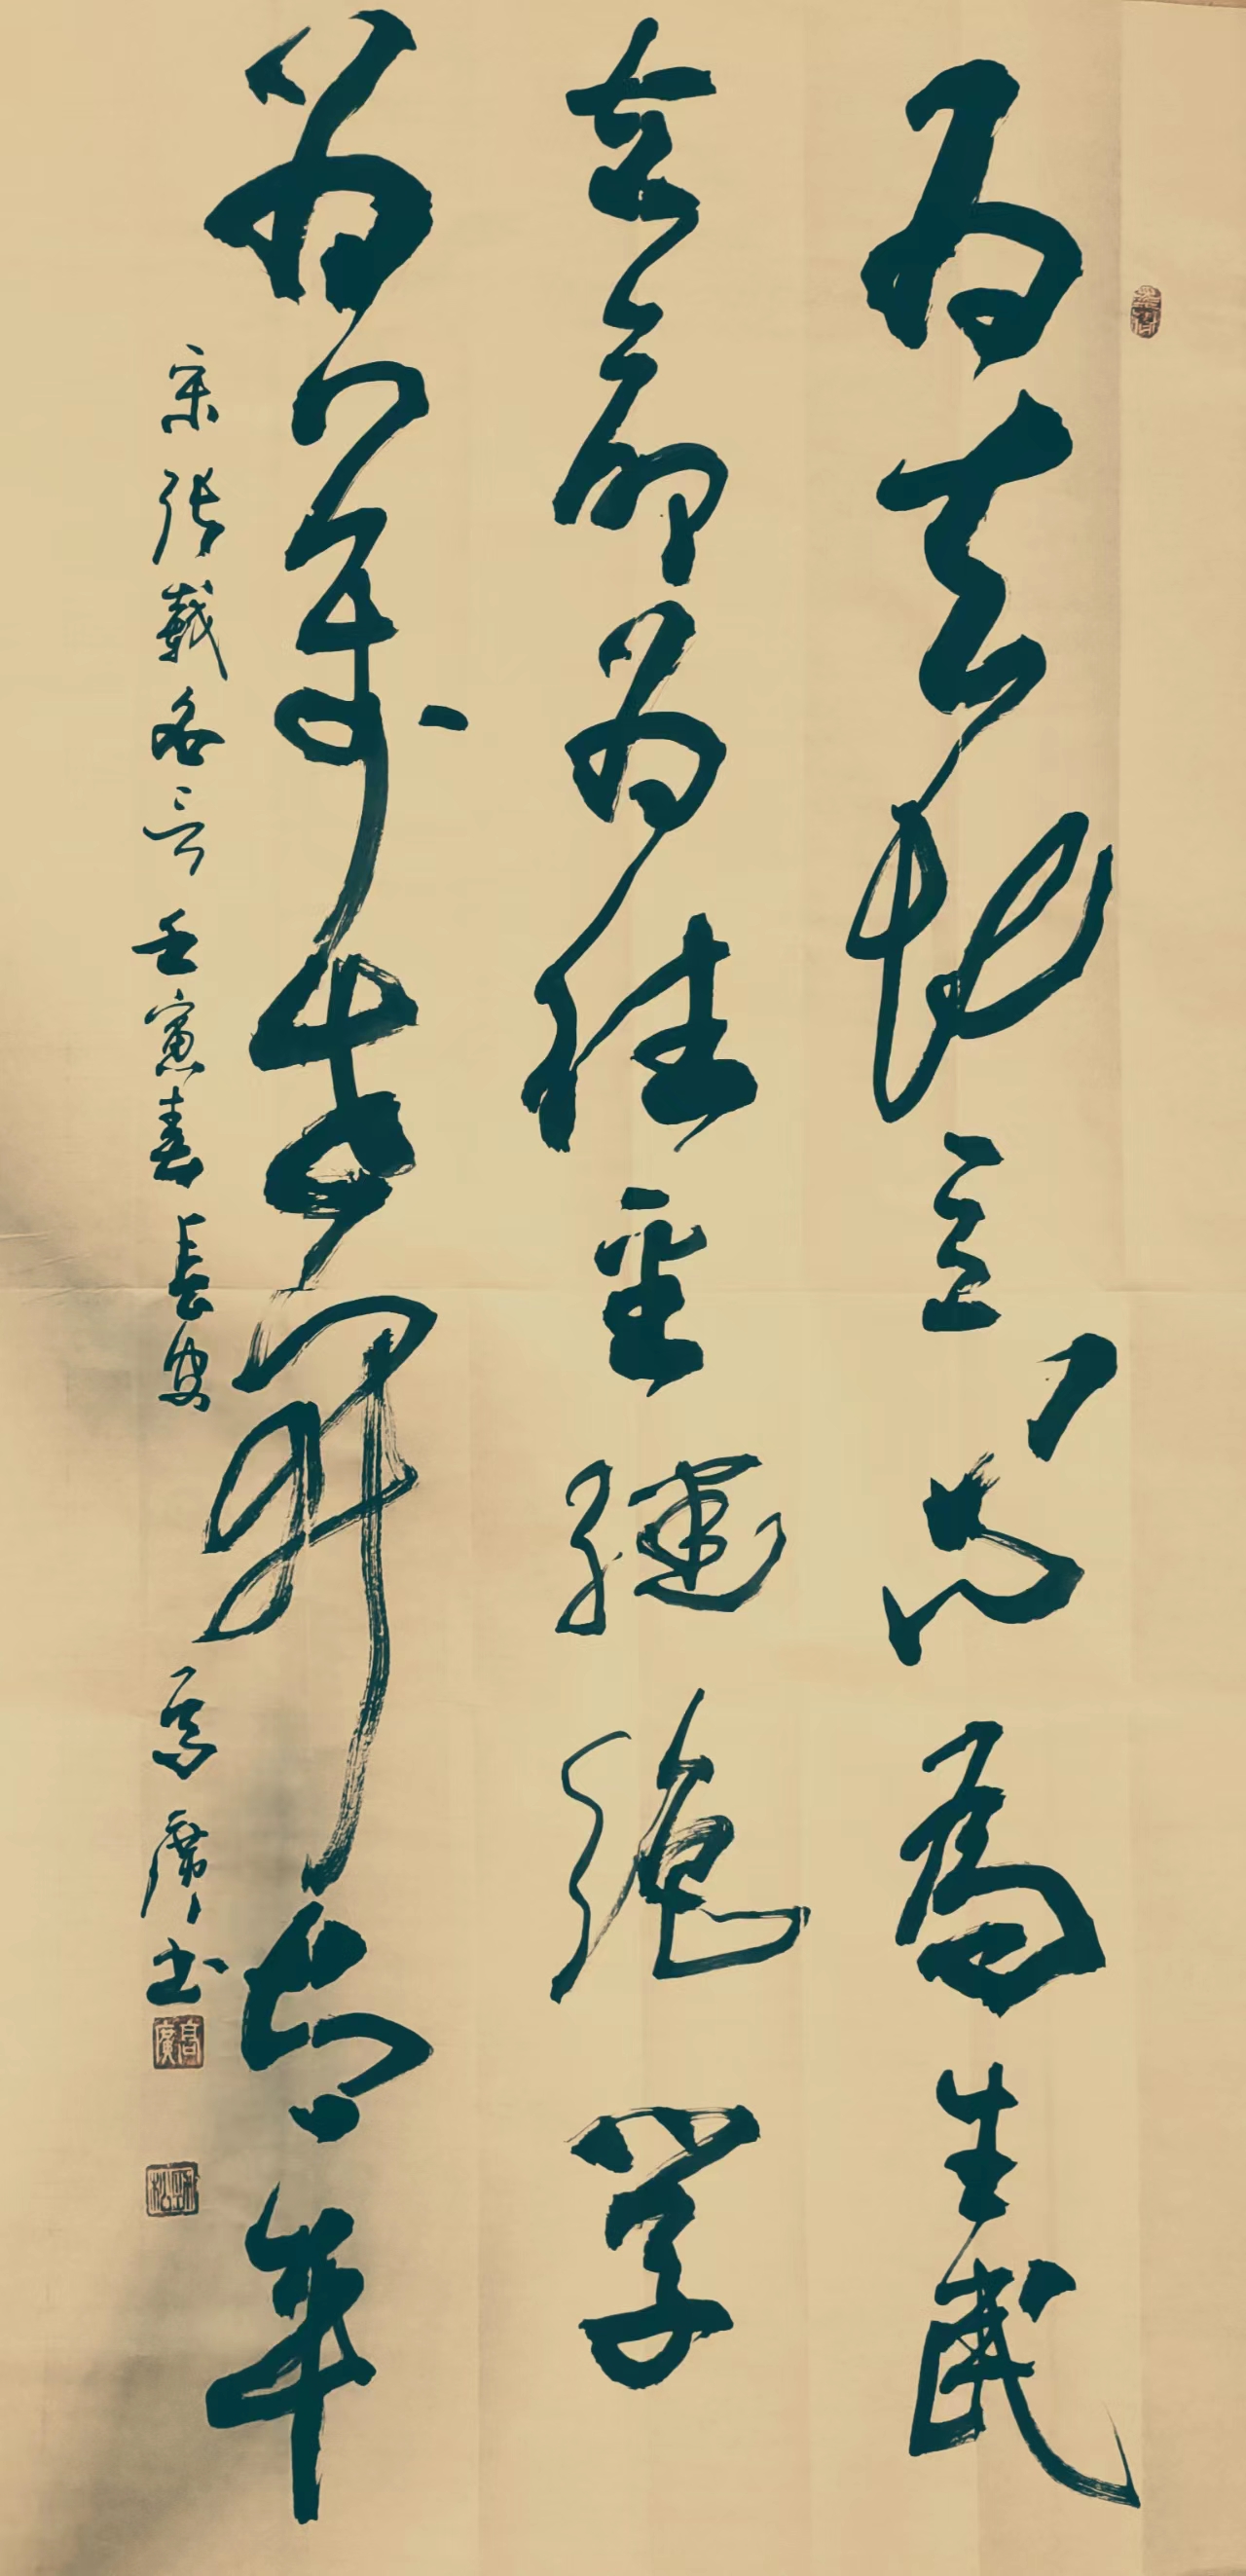 為天地立心為生民
立命為往聖繼絕學
為萬世開太平
宋張載名言壬寅春長安高廣書
高廣